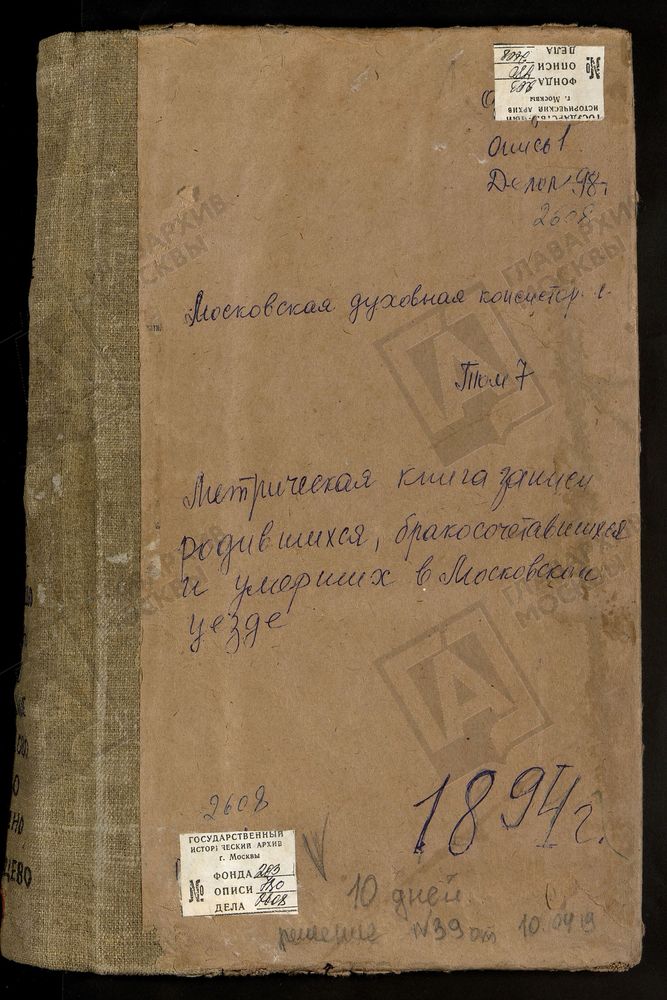 №
ГОСУДАРСТВЕННЫЙ
ИСТОРИЧЕСКИЙ АРХИВ
г. Москвы
ФОНДА 203
ОПИСИ 780
ДЕЛА 2608
Опись 1
Дело № 98
2608
ГЛАВАРХИВ
МОСКВЫ
ГЛАВАРХИВ
МОСКВЫ
Московская духовная консистор.
Том 7
Метрическая книга записи
родившихся, бракосочетавшихся
и умерших в Московском
уезде
ГЛАВАРХИВ
МОСКВЫ
МОСКВЫ
1894 г.
2608
ГОСУДАРСТВЕННЫЙ
ИСТОРИЧЕСКИЙ АРХИВ
г. Москвы
№
ФОНДА 203
ОПИСИ 780
ДЕЛА 2608
10 дней
решение №39 от 10.04.19